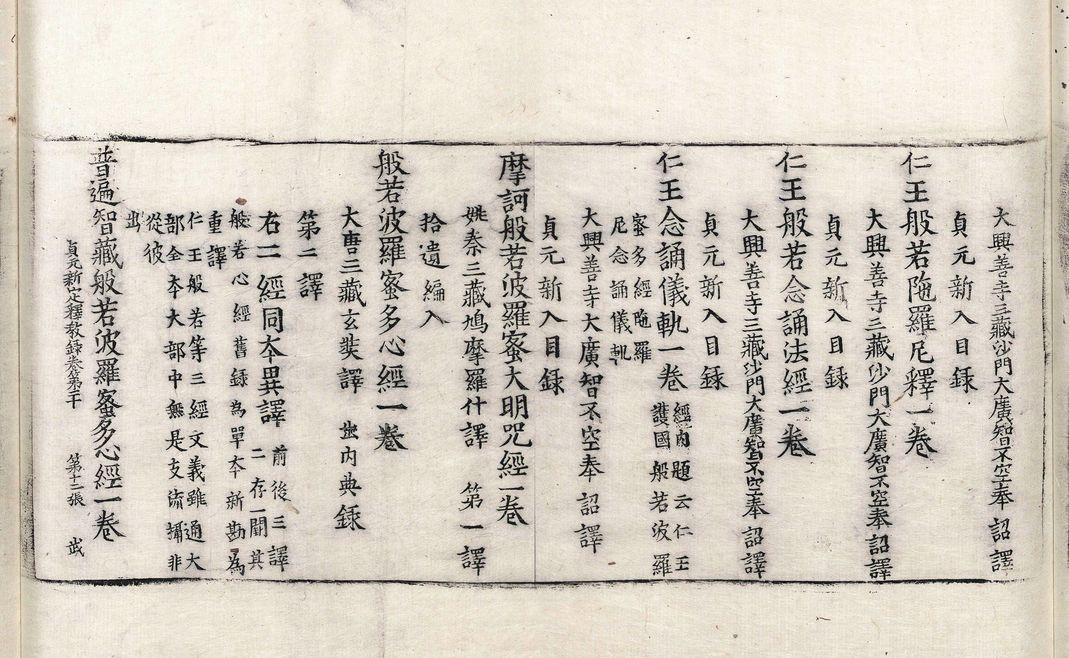 大興善寺三藏沙門大廣智不空奉 詔譯
貞元新入目録
仁王般若陁羅尼釋一卷
大興善寺三藏沙門大廣智不空奉 詔譯
貞元新入目録
仁王般若念誦法經一卷
大興善寺三藏沙門大廣智不空奉 詔譯
貞元新入目録
仁王念誦儀軌一卷 經內題云仁王
護國般若波羅
蜜多經陁羅
尼念誦儀軌
大興善寺大廣智不空奉 詔譯
貞元新入目録
摩訶般若波羅蜜大明咒經一卷
姚秦三藏鳩摩羅什譯 第一譯
拾遺編入
般若波羅蜜多心經一卷
大唐三藏玄奘譯 出內典録
第二譯
右二經同本異譯 前後三譯
二存一闕其
般若心經舊録為單本新勘為
重譯
仁王般若等三經文義雖通大
部全本大部中無是支流攝非
從彼
出
普遍智藏般若波羅蜜多心經一卷
貞元新定釋教録卷第三十 第十二張 武